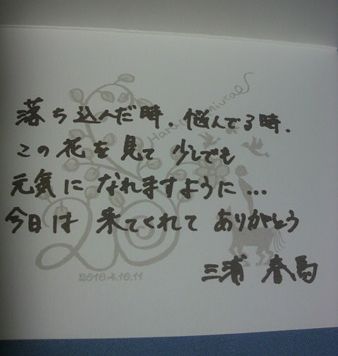 落ち込んだ時、悩んでる時、
この花を見て 少しでも
元気に なれますように…
今日は 来てくれて ありがとう
三浦 春馬